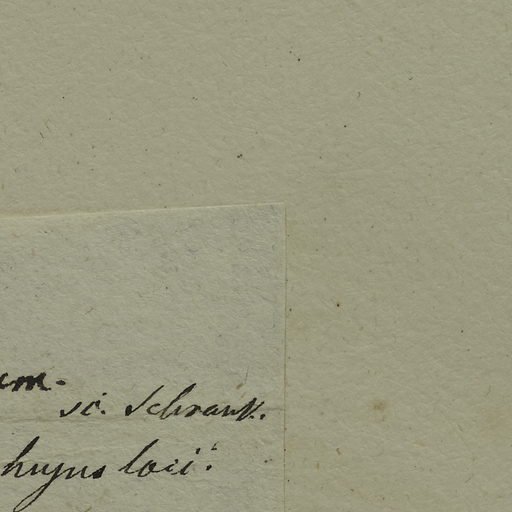 um.
sc. Schrank.
hujus loci.